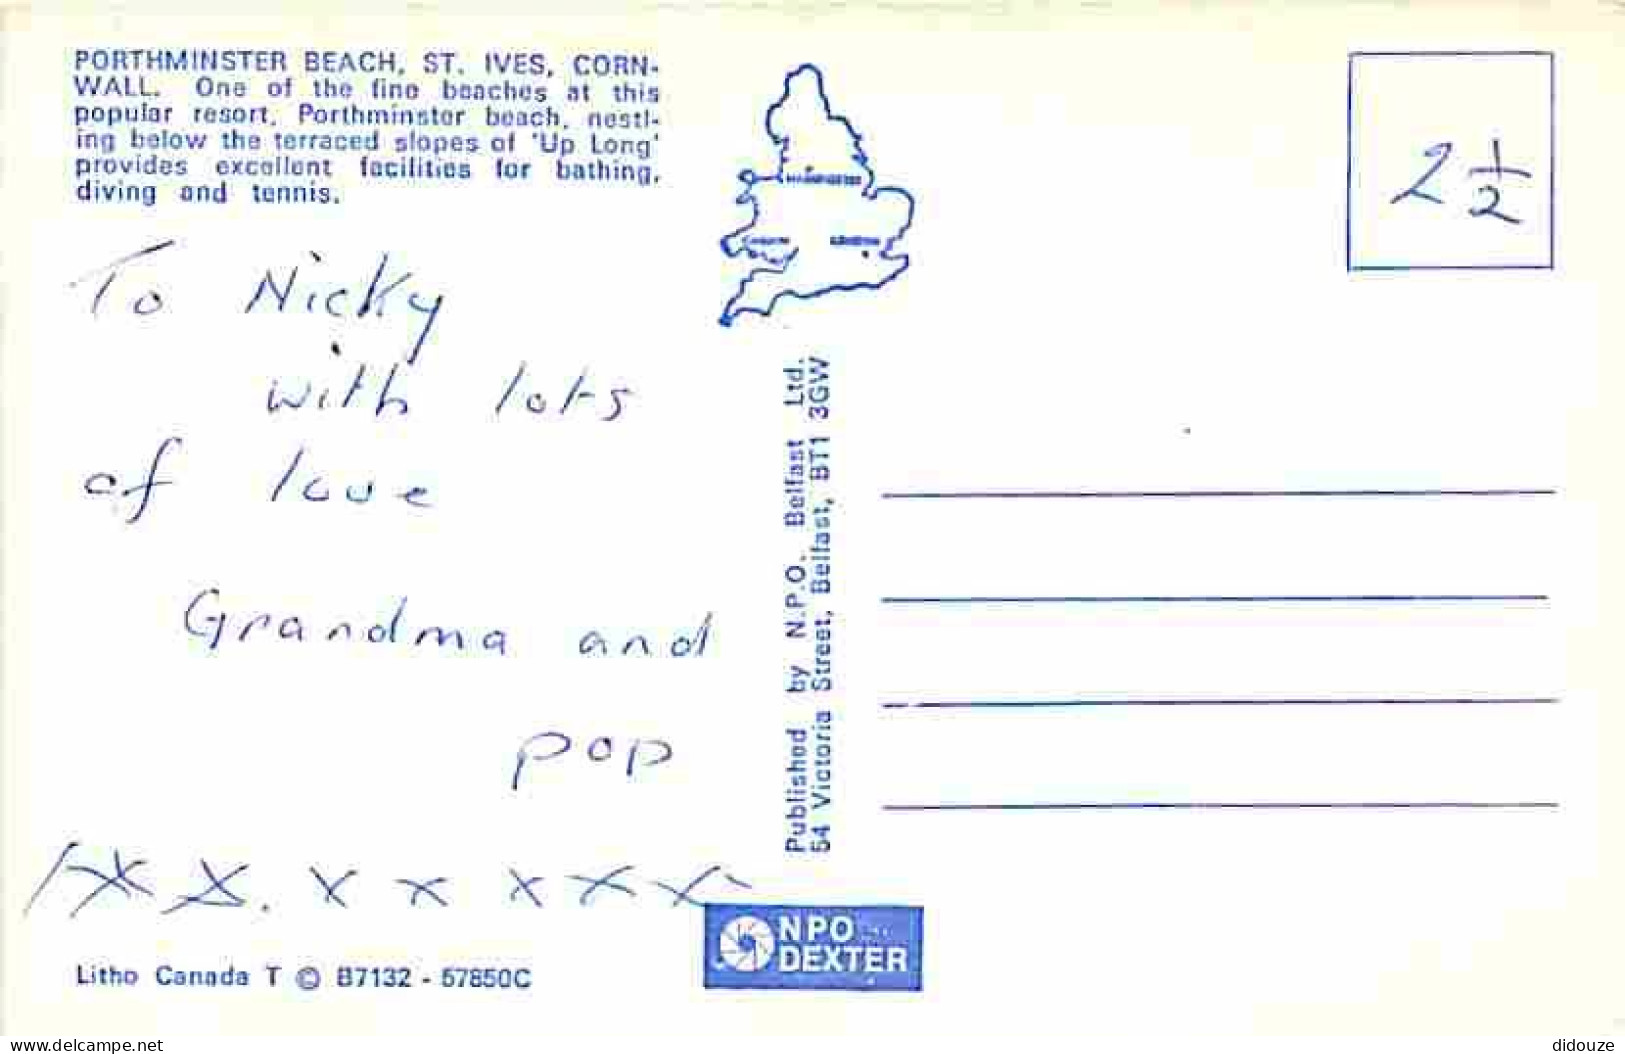 PORTHMINSTER BEACH, ST. IVES, CORN-
WALL. One of the fine beaches at this
popular resort, Porthminster beach, nestl-
ing below the terraced slopes of 'Up Long'
provides excellent facilities for bathing,
diving and tennis.
To Nicky
with lots
of love
Grandma and
pop
x x x x x x x
MANCHESTER
LONDON
2 1/2
Published by N.P.O. Belfast Ltd.
54 Victoria Street, Belfast, BT1 3GW
NPO
DEXTER
Litho Canada T © B7132 - 57850C
www.delcampe.net
didouze